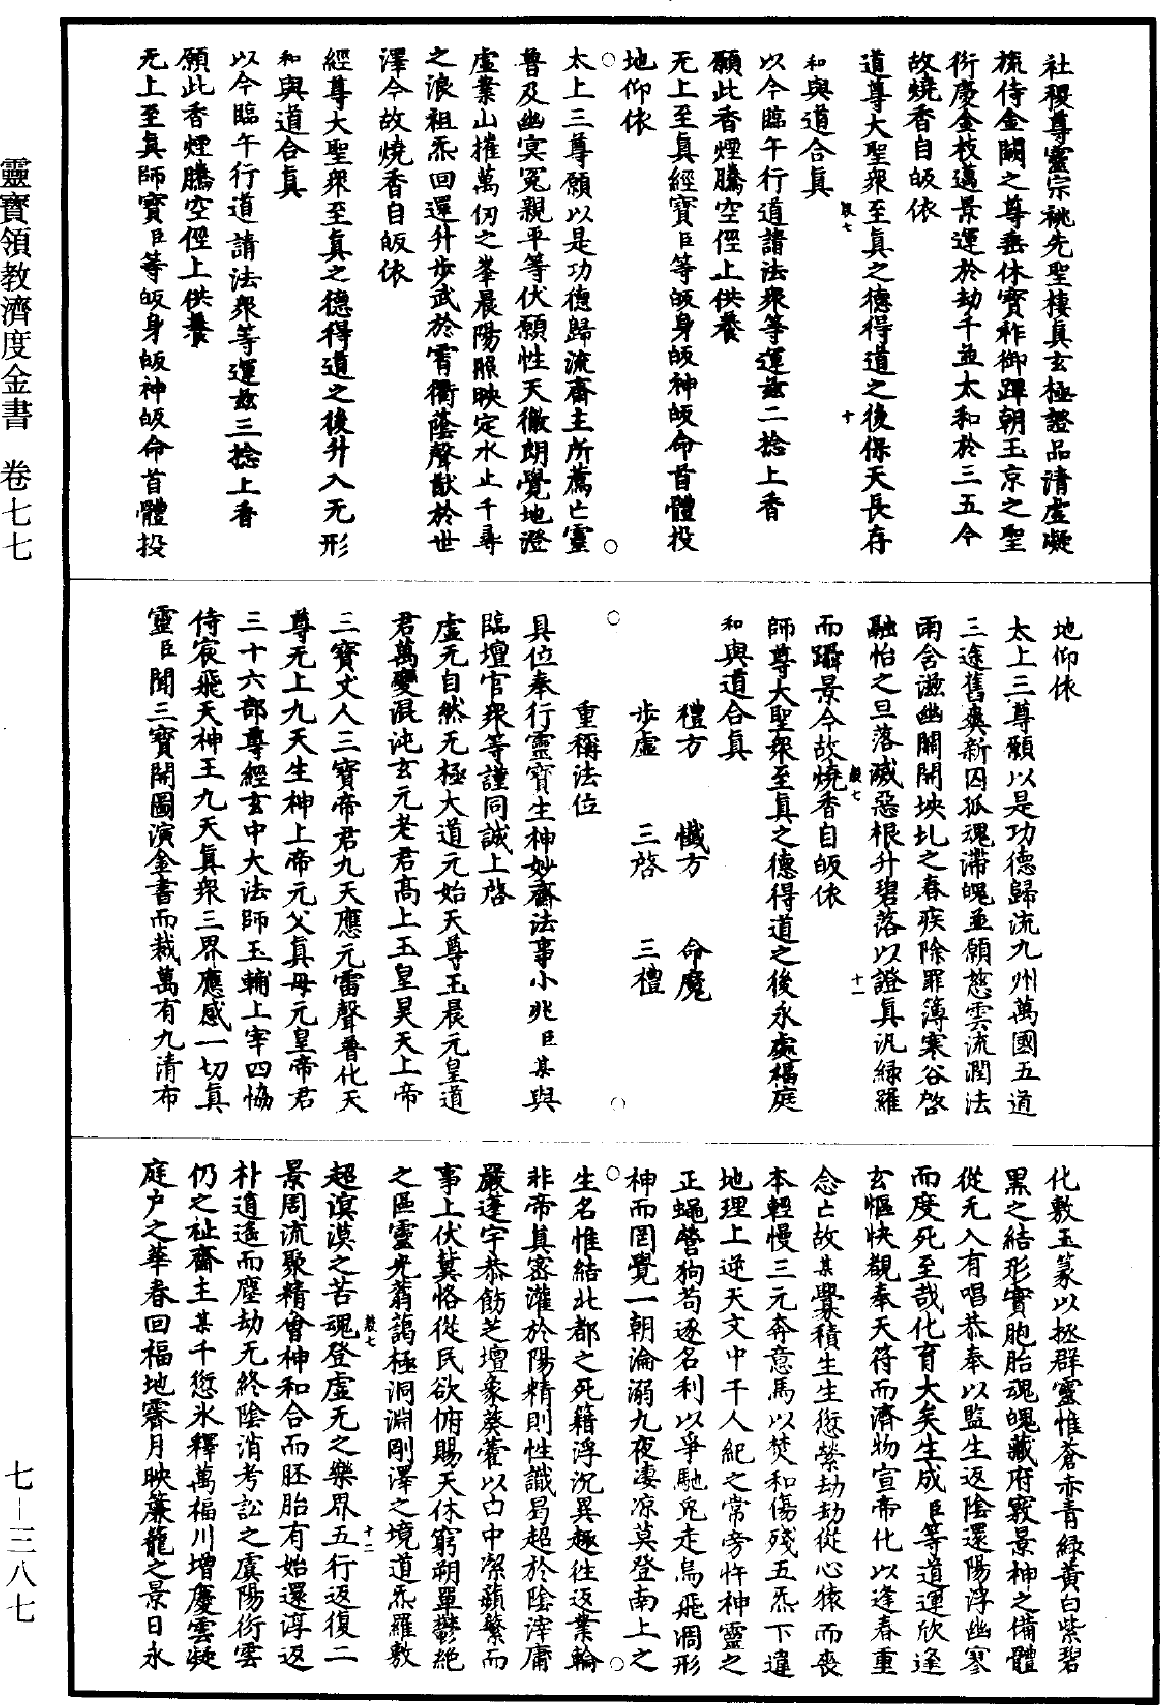 社稷尊靈宗祧先聖棲真玄極證品清虛凝
旒侍金闕之尊垂休寶祚御蹕朝玉京之聖
衍慶金枝邁景運於劫千益太和於三五今
故燒香自皈依
道尊大聖衆至真之德得道之後保天長存
和與道合真
以今臨午行道請法衆等運茲二捻上香
願此香煙騰空徑上供養
无上至真經寶臣等皈身皈神皈命首體投
地仰依
太上三尊願以是功德歸流齋主所薦亡靈
魯及幽冥冤親平等伏願性天徹朗覺地澄
虛業山摧萬仞之峯晨陽照映定水止千尋
之浪祖炁回還升步武於霄衢蔭聲猷於世
澤今故燒香自皈依
經尊大聖衆至真之德得道之後升入无形
和與道合真
以今臨午行道請法衆等運茲三捻上香
願此香煙騰空徑上供養
无上至真師寶臣等皈身皈神皈命首體投
地仰依
太上三尊願以是功德歸流九州萬國五道
三途舊爽新囚孤魂滯魄並願慈雲流潤法
雨含滋幽關開坱圠之春疾除罪簿寒谷啓
融怡之旦落滅惡根升碧落以證真汎綠羅
而躡景今故燒香自皈依
師尊大聖衆至真之德得道之後永處福庭
和與道合真
禮方 懺方 命魔
步虛 三啓 三禮
重稱法位
具位奉行靈寶生神妙齋法事小兆臣某與
臨壇官衆等謹同誠上啓
虛无自然无極大道元始天尊玉晨元皇道
君萬變混沌玄元老君高上玉皇昊天上帝
三寶丈人三寶帝君九天應元雷聲普化天
尊无上九天生神上帝元父真母元皇帝君
三十六部尊經玄中大法師玉輔上宰四協
侍宸飛天神王九天真衆三界應感一切真
靈臣聞三寶開圖演金書而裁萬有九清布
化敷玉篆以拯群靈惟蒼赤青綠黃白紫碧
黑之結形實胞胎魂魄藏府竅景神之備體
從无入有唱恭奉以監生返陰還陽浮幽寥
而度死至哉化育大矣生成臣等道運欣逢
玄樞快覩奉天符而濟物宣帝化以逢春重
念亡故某釁積生生愆縈劫劫從心猿而喪
本輕慢三元奔意馬以焚和傷殘五炁下違
地理上逆天文中干人紀之常旁忤神靈之
正蠅營狗苟逐名利以爭馳兔走烏飛凋形
神而罔覺一朝淪溺九夜凄凉莫登南上之
生名惟結北都之死籍浮沉異趣往返業輪
非帝真密灌於陽精則性識曷超於陰滓庸
嚴蓬宇恭飭芝壇象葵藿以占中潔蘋蘩而
事上伏冀恪從民欲俯賜天休窮朔單鬱絶
之區靈光蓊藹極洞淵剛澤之境道炁羅敷
超溟漠之苦魂登虛无之樂界五行返復二
景周流聚精會神和合而胚胎有始還淳返
朴逍遙而塵劫无終陰消考訟之虞陽衍雲
仍之祉齋主某千愆氷釋萬福川增慶雲凝
庭戶之華春回福地霽月映簾籠之景日永
靈寶領教濟度金書 卷七七
七—三八七